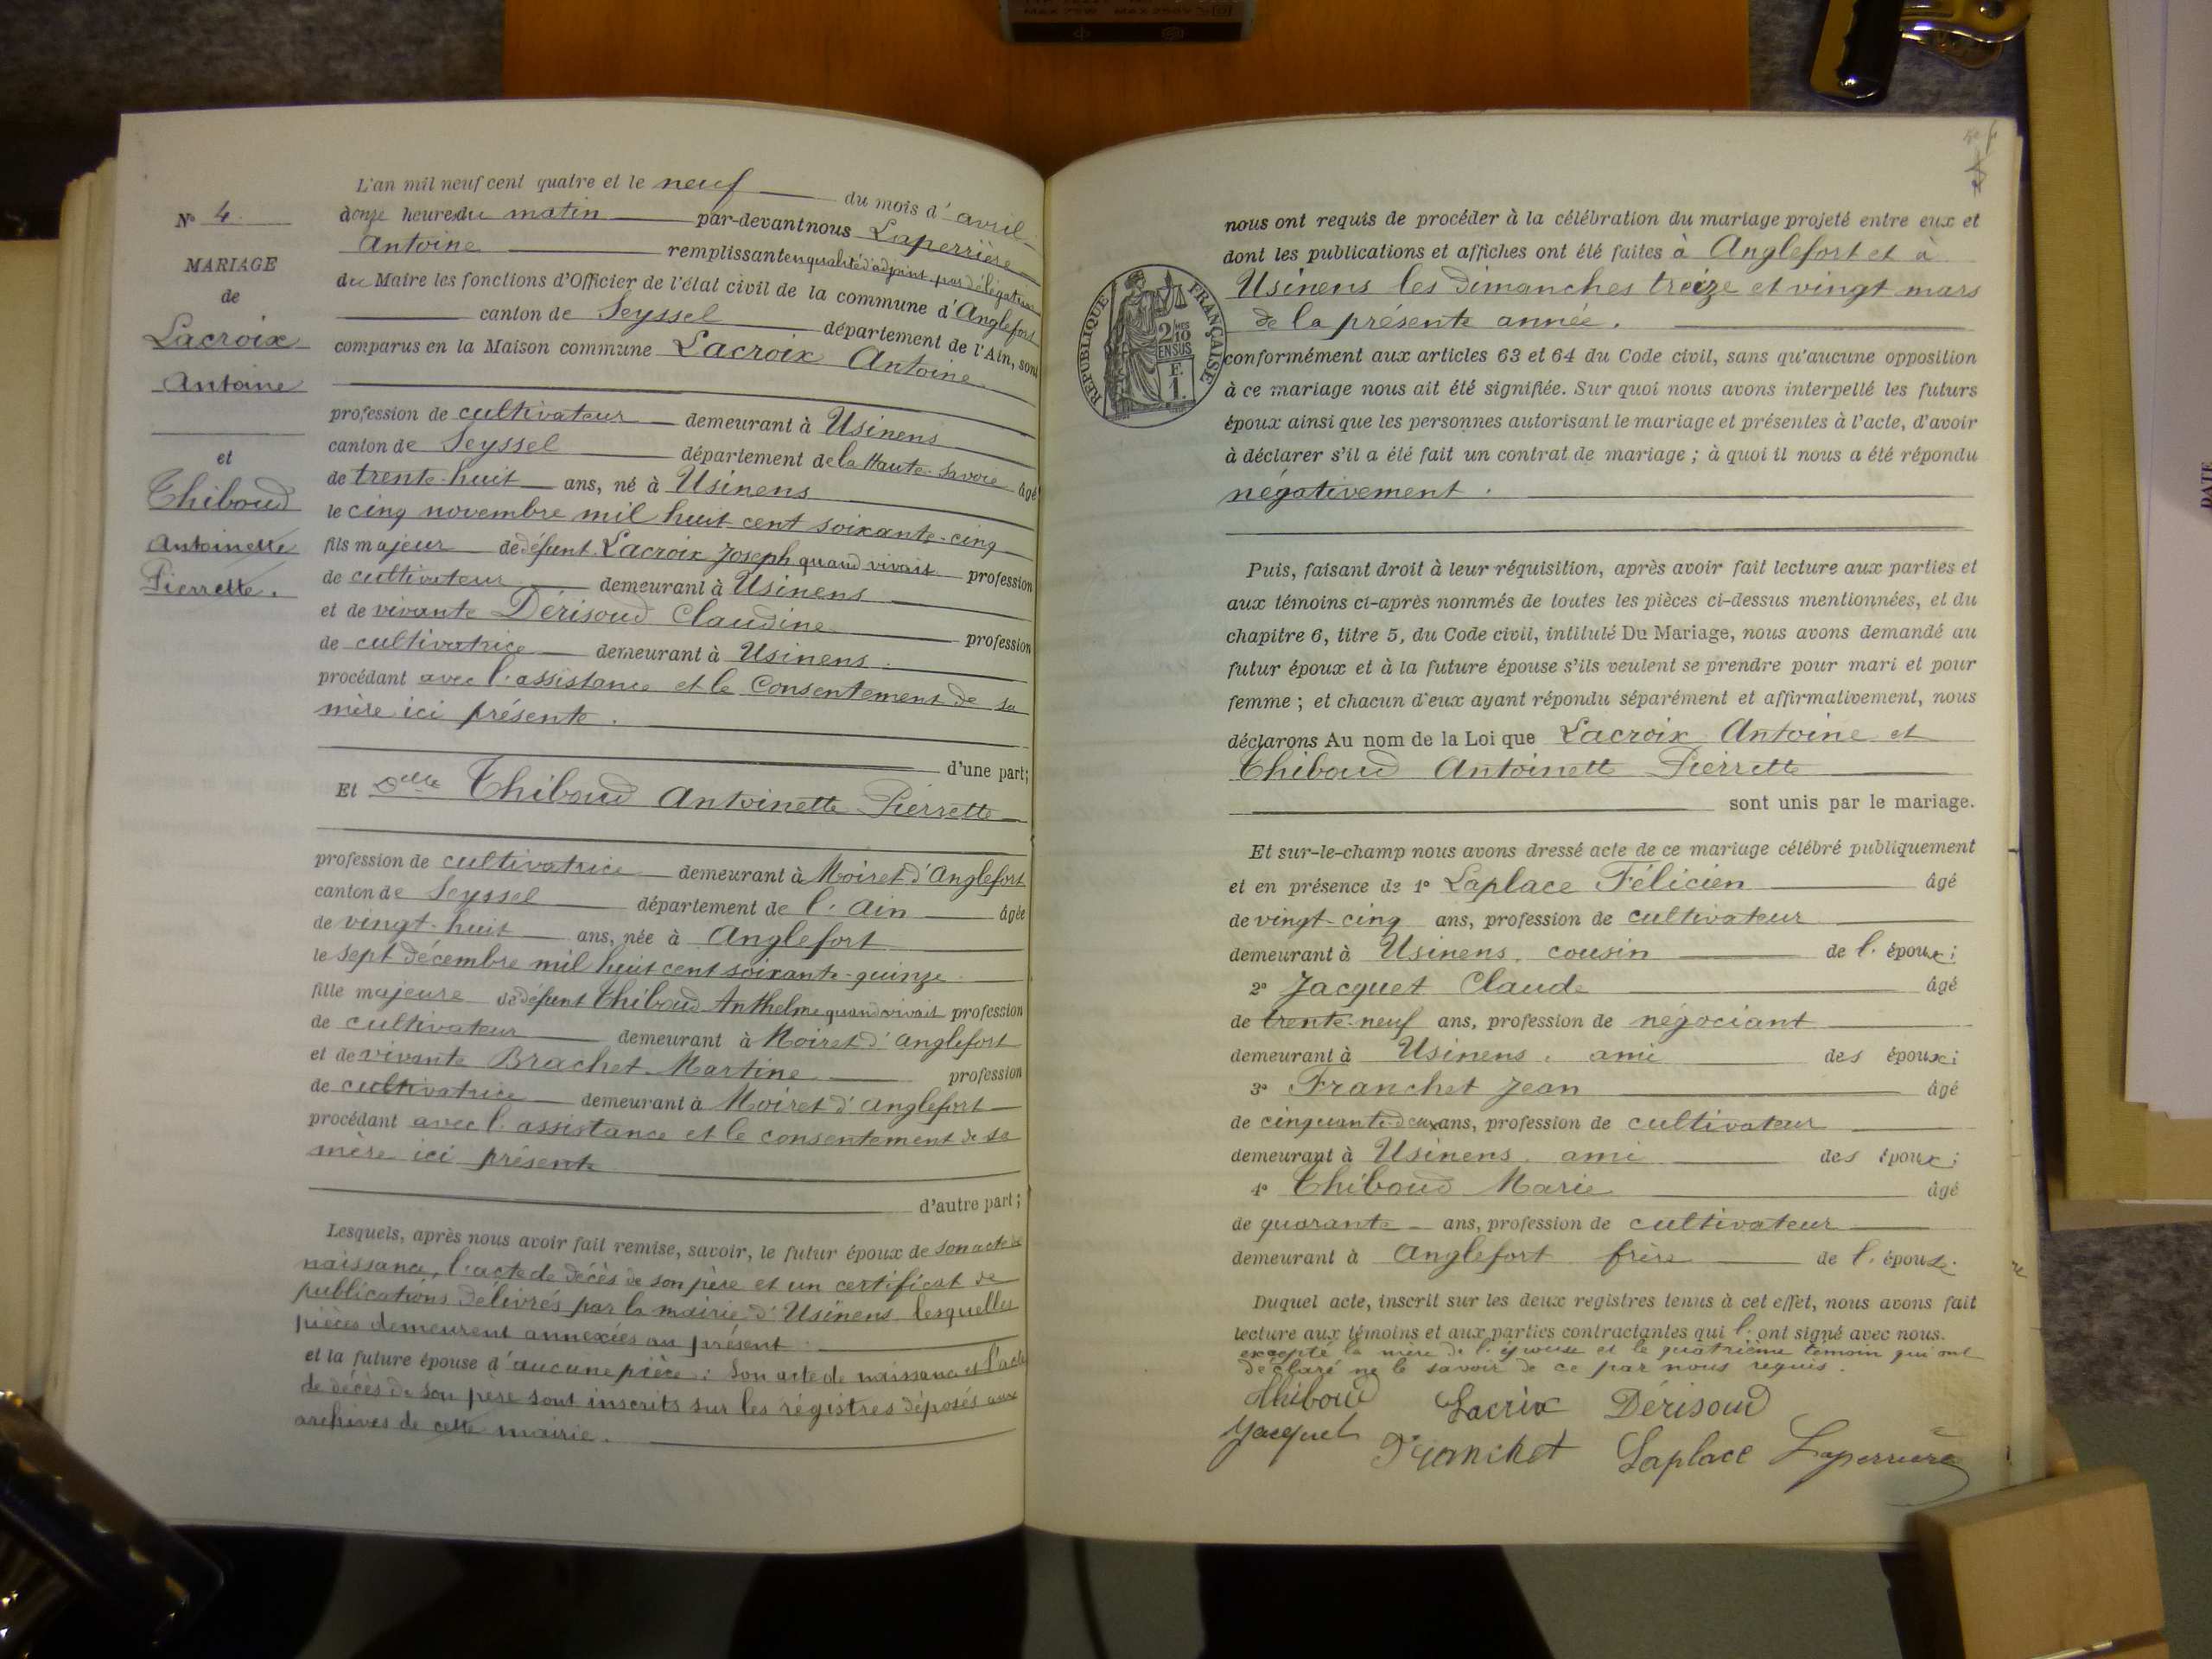 L'an mil neuf cent quatre et le neuf du mois d'avril
à onze heures du matin par-devant nous Laperrière
Antoine remplissant en qualité d'adjoint par délégation
du Maire les fonctions d'Officier de l'état civil de la commune d'Anglefort
canton de Seyssel département de l'Ain, sont
comparus en la Maison commune Lacroix Antoine
profession de cultivateur demeurant à Usinens
canton de Seyssel département de la Haute-Savoie âgé
de trente-huit ans, né à Usinens
le cinq novembre mil huit cent soixante-cinq
fils majeur de défunt Lacroix Joseph quand vivait profession
de cultivateur demeurant à Usinens
et de vivante Dérisoud Claudine profession
de cultivatrice demeurant à Usinens.
procédant avec l'assistance et le consentement de sa
mère ici présente.
d'une part;
Et Delle Thiboud Antoinette Pierrette
profession de cultivatrice demeurant à Moiret d'Anglefort
canton de Seyssel département de l'Ain âgée
de vingt-huit ans, née à Anglefort
le sept décembre mil huit cent soixante-quinze
fille majeure de défunt Thiboud Anthelme quand vivait profession
de cultivateur demeurant à Moiret d'Anglefort
et de vivante Brachet Martine profession
de cultivatrice demeurant à Moiret d'Anglefort
procédant avec l'assistance et le consentement de sa
mère ici présente
d'autre part;
Lesquels, après nous avoir fait remise, savoir, le futur époux de son acte de
naissance, l'acte de décès de son père et un certificat de
publications délivrés par la mairie d'Usinens lesquelles
pièces demeurent annexées au présent
et la future épouse d'aucune pièce : Son acte de naissance et l'acte
de décès de son père sont inscrits sur les régistres déposés aux
archives de cette mairie.
N° 4
MARIAGE
de
Lacroix
Antoine
et
Thiboud
Antoinette
Pierrette.
nous ont requis de procéder à la célébration du mariage projeté entre eux et
dont les publications et affiches ont été faites à Anglefort et à
Usinens les dimanches treize et vingt mars
de la présente année.
conformément aux articles 63 et 64 du Code civil, sans qu'aucune opposition
à ce mariage nous ait été signifiée. Sur quoi nous avons interpellé les futurs
époux ainsi que les personnes autorisant le mariage et présentes à l'acte, d'avoir
à déclarer s'il a été fait un contrat de mariage ; à quoi il nous a été répondu
négativement.
Puis, faisant droit à leur réquisition, après avoir fait lecture aux parties et
aux témoins ci-après nommés de toutes les pièces ci-dessus mentionnées, et du
chapitre 6, titre 5, du Code civil, intitulé Du Mariage, nous avons demandé au
futur époux et à la future épouse s'ils veulent se prendre pour mari et pour
femme ; et chacun d'eux ayant répondu séparément et affirmativement, nous
déclarons Au nom de la Loi que Lacroix Antoine et
Thiboud Antoinette Pierrette
sont unis par le mariage.
Et sur-le-champ nous avons dressé acte de ce mariage célébré publiquement
et en présence de 1° Laplace Félicien âgé
de vingt-cinq ans, profession de cultivateur
demeurant à Usinens. cousin de l'époux;
2° Jacquet Claude âgé
de trente-neuf ans, profession de négociant
demeurant à Usinens. ami des époux;
3° Franchet Jean âgé
de cinquante-deux ans, profession de cultivateur
demeurant à Usinens. ami des époux;
4° Thiboud Marie âgé
de quarante ans, profession de cultivateur
demeurant à Anglefort frère de l'épouse.
Duquel acte, inscrit sur les deux registres tenus à cet effet, nous avons fait
lecture aux témoins et aux parties contractantes qui l'ont signé avec nous.
excepté la mère de l'épouse et le quatrième témoin qui ont
déclaré ne le savoir de ce par nous requis.
Thiboud Lacrix Dérisoud
Jacquet Franchet Laplace Laperrière
RÉPUBLIQUE FRANÇAISE
2/10 EN SUS
F.
1.
DATE